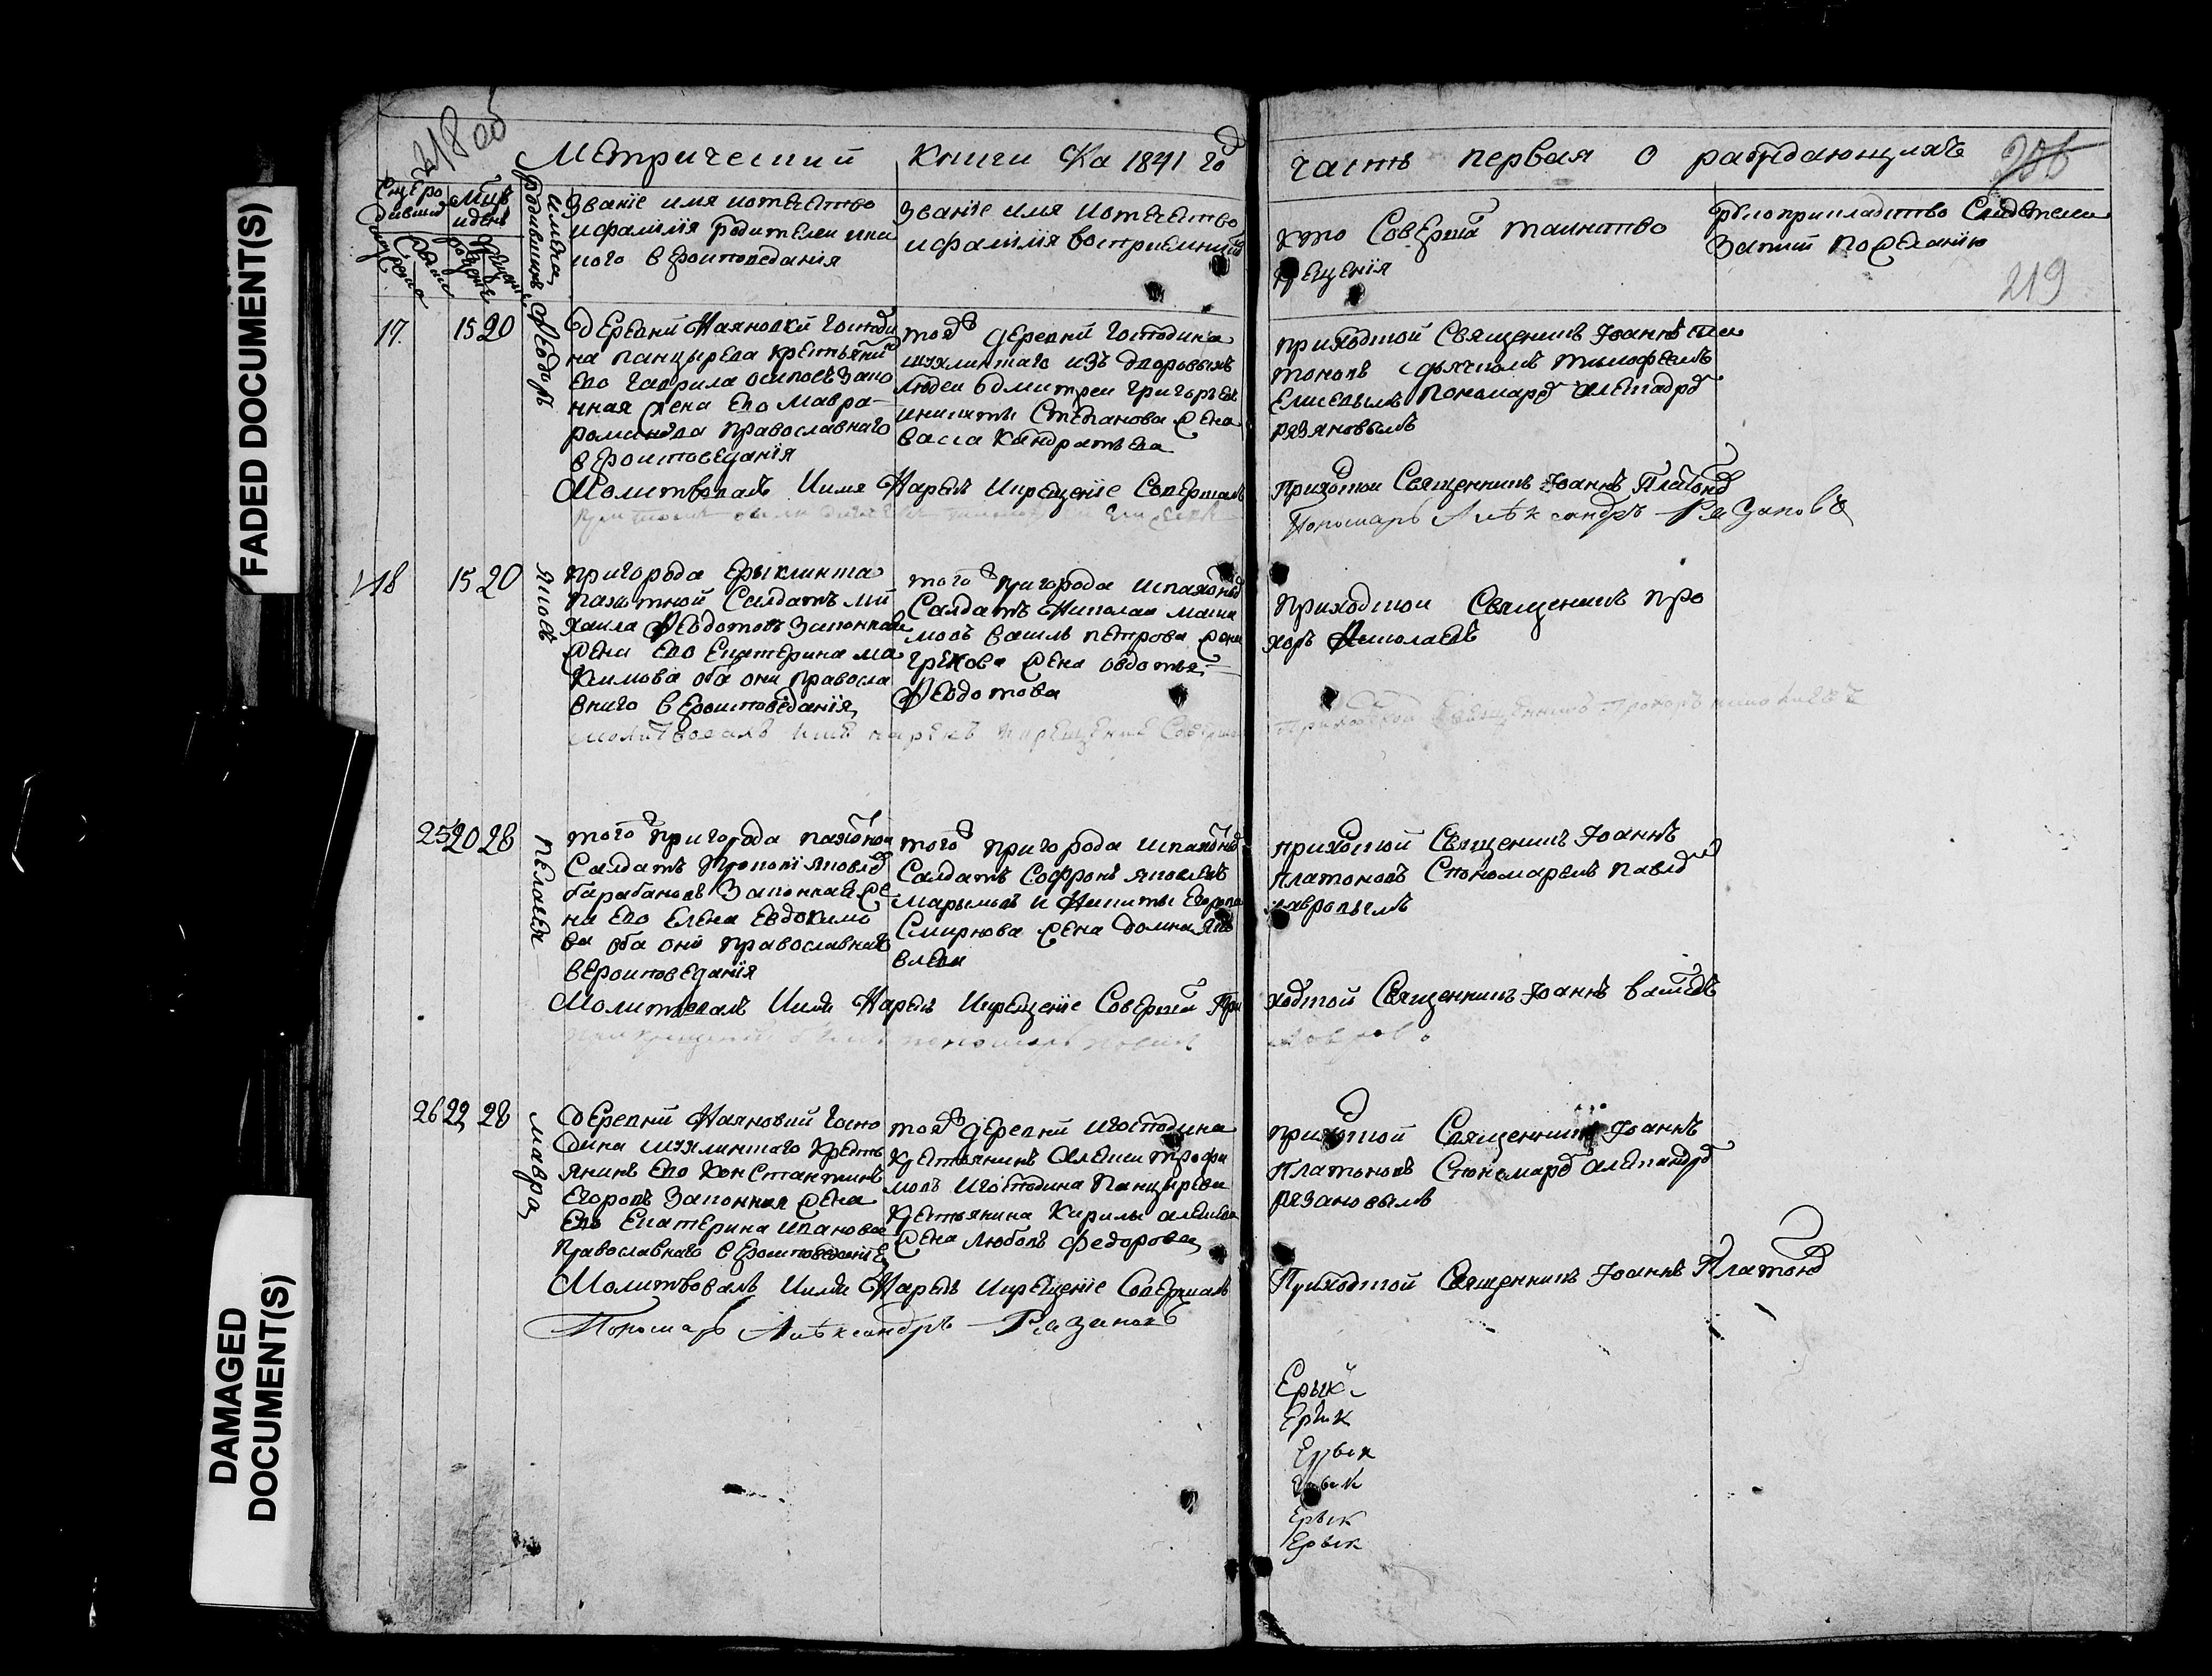 FADED DOCUMENT(S)
DAMAGED
DOCUMENT(S)
218 об
Метрической Книги На 1841 год
часть первая о раждающихся
219
имена родившихся
Званіе имя иотечество
ифамілія родителей икакого вероисповеданія
Званіе имя иотечество
ифамілія восприемников
кто Соверша таинство
крещенія
рукоприкладство Свидетелей
Записи пожеланію
17. 15 20
Феодоръ
деревни Каяновки Господи
на панцырева крестьянин
его гаврила осиповъ зако
нная жена его Мавра
романова православнаго
вероисповеданія
тояж деревни Господина
изъ дворовыхъ
людеи дмитреи григорьев
иникиты Степанова жена
васса Кондратьева
приходской Священникъ Іоаннъ пла
тоновъ здьячкомъ тимофеемъ
Елисевымъ пономаремъ александромъ
резановымъ
Молитвовалъ Иимя Нарекъ Икрещеніе Совершалъ
Приходской Священникъ Іоаннъ Платонов
Пономарь Александръ Резановъ
18 15 20
Яковъ
пригорода Ерыклинска
пахотной Салдатъ ми
хаила Феодотовъ Законная
жена его Екатерина ма
ксимова оба они правосла
внаго вероисповеданія
того ж пригорода испахотных
Салдатъ Николаи макси
мовъ василья петрова сына
грекова жена овдотья
Феодотова
приходской Священникъ про
хоръ Николаевъ
молитвовалъ имя нарекъ икрещение Соверша
Приходской Священникъ Прохоръ николаевъ
25 20 28
Пелагея
того ж пригорода пахотной
Салдатъ Прокопі яковлев
барабановъ Законная же
на его Елена Евдокимо
ва оба они православнаго
вероисповеданія
того ж пригорода испахотных
Салдатъ Софронъ яковлевъ
марымовъ и Никиты Егорова
Смирнова жена домна яко
влева
приходской Священникъ Іоаннъ
платоновъ Спономаремъ павлом
лавровымъ
Молитвовалъ Иимя Нарекъ Икрещеніе Соверша При
ходской Священникъ Іоаннъ
при крещении былъ пономарь павелъ
лавровъ
26 22 28
мавра
деревни Каяновки Госпо
дина крестьянинъ его Константинъ
Егоровъ Законная жена
его Екатерина иванова
православнаго вероисповеданіе
тояж деревни игосподина
крестьянинъ Алексеи трофи
мовъ игосподина Панцырева
крестьянина Кирилы алексеева
жена любовь федорова
приходской Священникъ Іоаннъ
платоновъ Спономаремъ александромъ
резановымъ
Молитвовалъ Иимя Нарекъ Икрещеніе Совершалъ
Приходской Священникъ Іоаннъ Платонов
Пономарь Александръ Резановъ
Ерык
Ерык
Ерык
Ерык
Ерык
Ерык